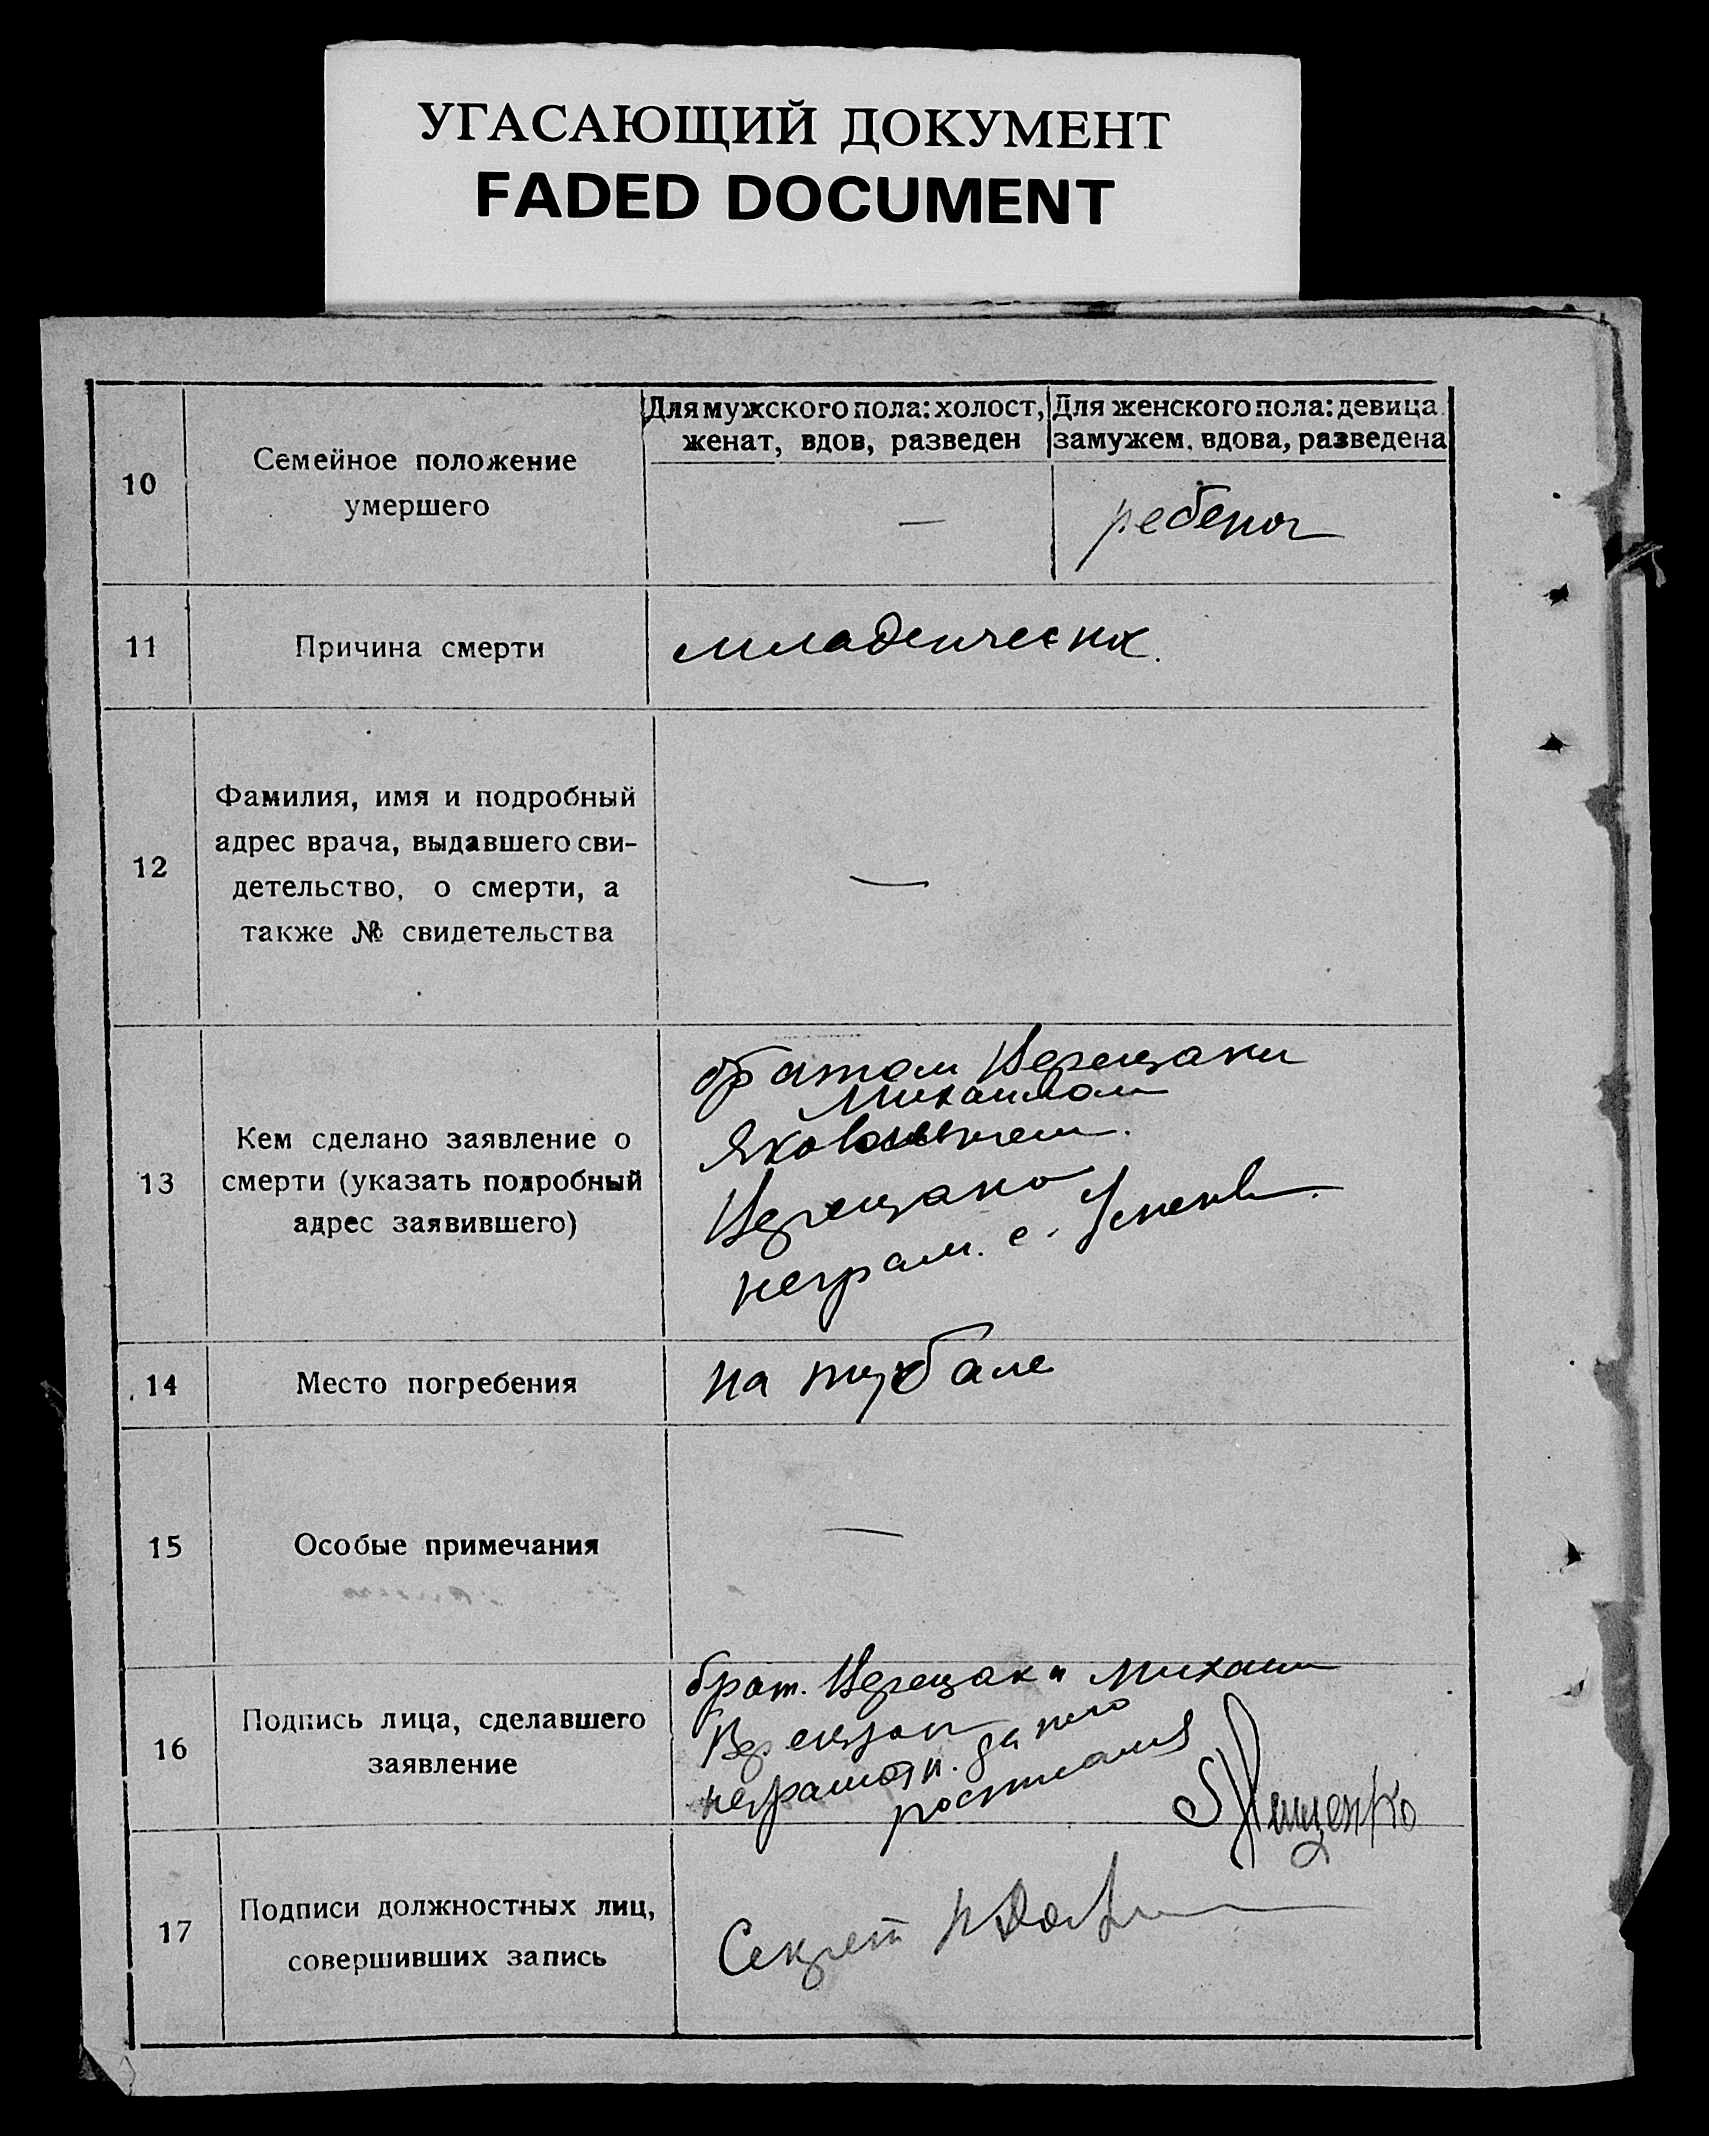 УГАСАЮЩИЙ ДОКУМЕНТ
FADED DOCUMENT
10
Семейное положение
умершего
Для мужского пола: холост,
женат, вдов, разведен
Для женского пола: девица
замужем, вдова, разведена
—
ребенок
11
Причина смерти
младенческих.
12
Фамилия, имя и подробный
адрес врача, выдавшего сви-
детельство, о смерти, а
также № свидетельства
—
13
Кем сделано заявление о
смерти (указать подробный
адрес заявившего)
братом Верещаки
Михаилом
Яковлевичем.
Верещако
неграм. с.
14
Место погребения
на
15
Особые примечания
—
16
Подпись лица, сделавшего
заявление
брат. Верещак и Михаил
Верещак
неграмотн. за него
росписался
17
Подписи должностных лиц,
совершивших запись
Секрет